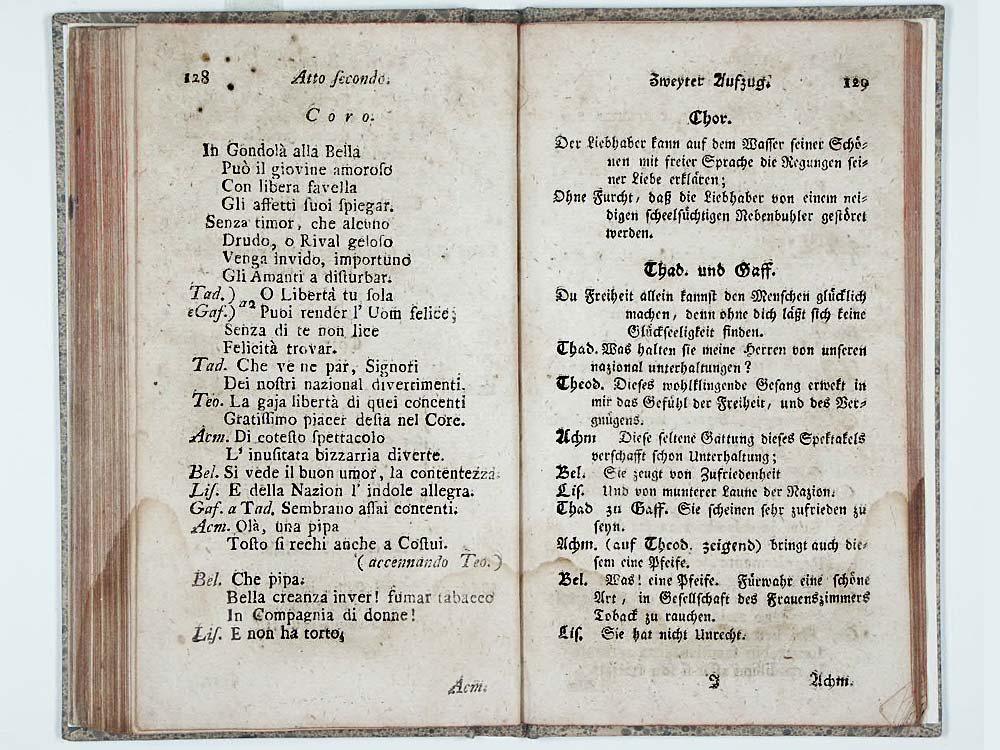 128 Atto ſecondo.
Coro.
In Gondolà alla Bella
Può il giovine amoroſo
Con libera favella
Gli affetti ſuoi ſpiegar.
Senza timor, che alcuno
Drudo, o Rival geloſo
Venga invido, importuno
Gli Amanti a diſturbar.
Tad.) a2 O Libertà tu ſola
e Gaf.) Puoi render l' Uom felice;
Senza di te non lice
Felicità trovar.
Tad. Che ve ne par, Signori
Dei noſtri nazional divertimenti.
Teo. La gaja libertà di quei concenti
Gratiſſimo piacer deſta nel Core.
Acm. Di coteſto ſpettacolo
L' inuſitata bizzarria diverte.
Bel. Si vede il buon umor, la contentezza.
Liſ. E della Nazion l' indole allegra.
Gaf. a Tad. Sembrano aſſai contenti.
Acm. Olà, una pipa
Toſto ſi rechi anche a Coſtui.
(accennando Teo.)
Bel. Che pipa.
Bella creanza inver! fumar tabacco
In Compagnia di donne!
Liſ. E non ha torto,
Acm.
Zweyter Aufzug. 129
Chor.
Der Liebhaber kann auf dem Waſſer ſeiner Schö-
nen mit freier Sprache die Regungen ſei-
ner Liebe erklären;
Ohne Furcht, daß die Liebhaber von einem nei-
digen ſcheelſüchtigen Nebenbuhler geſtöret
werden.
Thad. und Gaff.
Du Freiheit allein kannſt den Menſchen glücklich
machen, denn ohne dich läßt ſich keine
Glückſeeligkeit finden.
Thad. Was halten ſie meine Herren von unſeren
nazional unterhaltungen?
Theod. Dieſes wohlklingende Geſang erwekt in
mir das Gefühl der Freiheit, und des Ver-
gnügens.
Achm Dieſe ſeltene Gattung dieſes Spektakels
verſchafft ſchon Unterhaltung;
Bel. Sie zeugt von Zufriedenheit
Liſ. Und von munterer Laune der Nazion.
Thad zu Gaff. Sie ſcheinen ſehr zufrieden zu
ſeyn.
Achm. (auf Theod. zeigend) bringt auch die-
ſem eine Pfeife.
Bel. Was! eine Pfeife. Fürwahr eine ſchöne
Art, in Geſellſchaft des Frauenszimmers
Toback zu rauchen.
Liſ. Sie hat nicht Unrecht.
J Achm.